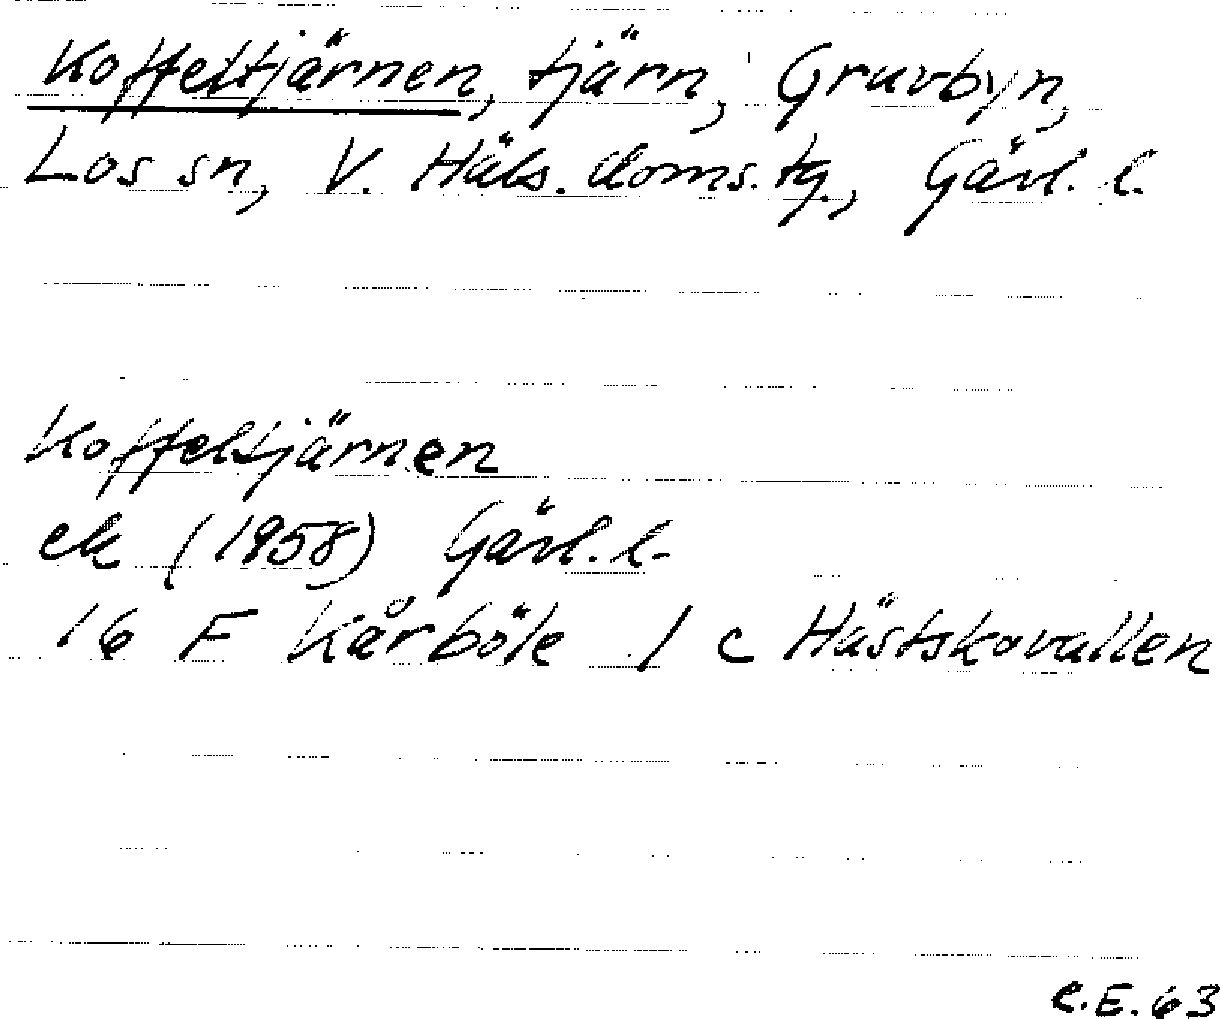 Koffeltjärnen, tjärn, Gruvbyn,
Los sn, V. Häls. doms. tg., Gävl. l.
Koffeltjärnen
ek (1958) Gävl. l.
16 F Kårböle 1 c Hästskovallen
C.E. 63